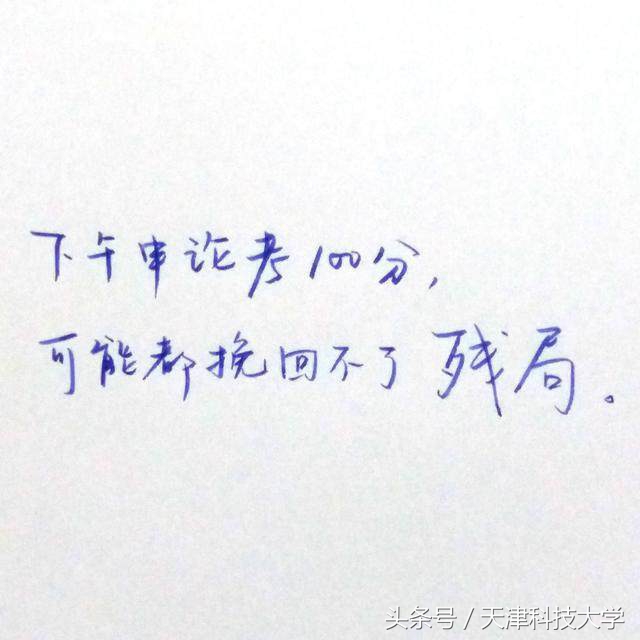 下午申论考100分，
可能都挽回不了残局。
头条号 / 天津科技大学